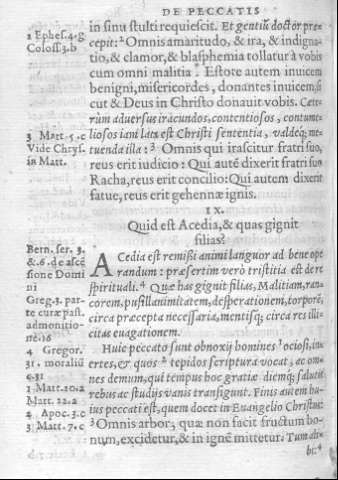 DE PECCATIS
in sinu stulti requiescit. Et gentiũ doctor prę
1 Ephes. 4. g.
cepit: ¹ Omnis amaritudo, & ira, & indigna
Coloss. 3. b
tio, & clamor, & blasphemia tollatur à vobis
cum omni malitia. Estote autem inuicem
benigni, misericordes, donantes inuicem, si
cut & Deus in Christo donauit vobis. Cæte
rùm aduersus iracundos, contentiosos, contume
3 Matt. 5. c.
liosos iam lata est Christi sententia, valdeq; me
Vide Chrys.
tuenda illa: ³ Omnis qui irascitur fratri suo,
in Matt.
reus erit iudicio: Qui autẽ dixerit fratri suo
Racha, reus erit concilio: Qui autem dixerit
fatue, reus erit gehennæ ignis.
IX.
Quid est Acedia, & quas gignit
filias?
Bern. ser. 3.
& .6. de ascẽ
sione Domi
ni
Greg. 3. par-
te curæ past.
admonitio-
ne. 16
ACedia est remissi animi languor ad bene ope
randum: præsertim verò tristitia est de re
spirituali. ⁴ Quæ has gignit filias, Malitiam, ran
corem, pusillanimitatem, desperationem, torporẽ
circa præcepta necessaria, mentisq; circa res illi-
citas euagationem.
4 Gregor.
31. moraliũ
c. 31
1 Matt. 20. a
Matt. 22. a
2 Apoc. 3. c
3 Matt. 7. c
Huic peccato sunt obnoxij homines ¹ ociosi, in-
ertes, & quos ² tepidos scriptura vocat, ac om-
nes demum, qui tempus hoc gratiæ diemq; salutis
rebus ac studijs vanis transigunt. Finis autem hu
ius peccati est, quem docet in Euangelio Christus:
³ Omnis arbor, quæ non facit fructum bo-
num, excidetur, & in ignẽ mittetur. Tum ali-
bi: ⁴